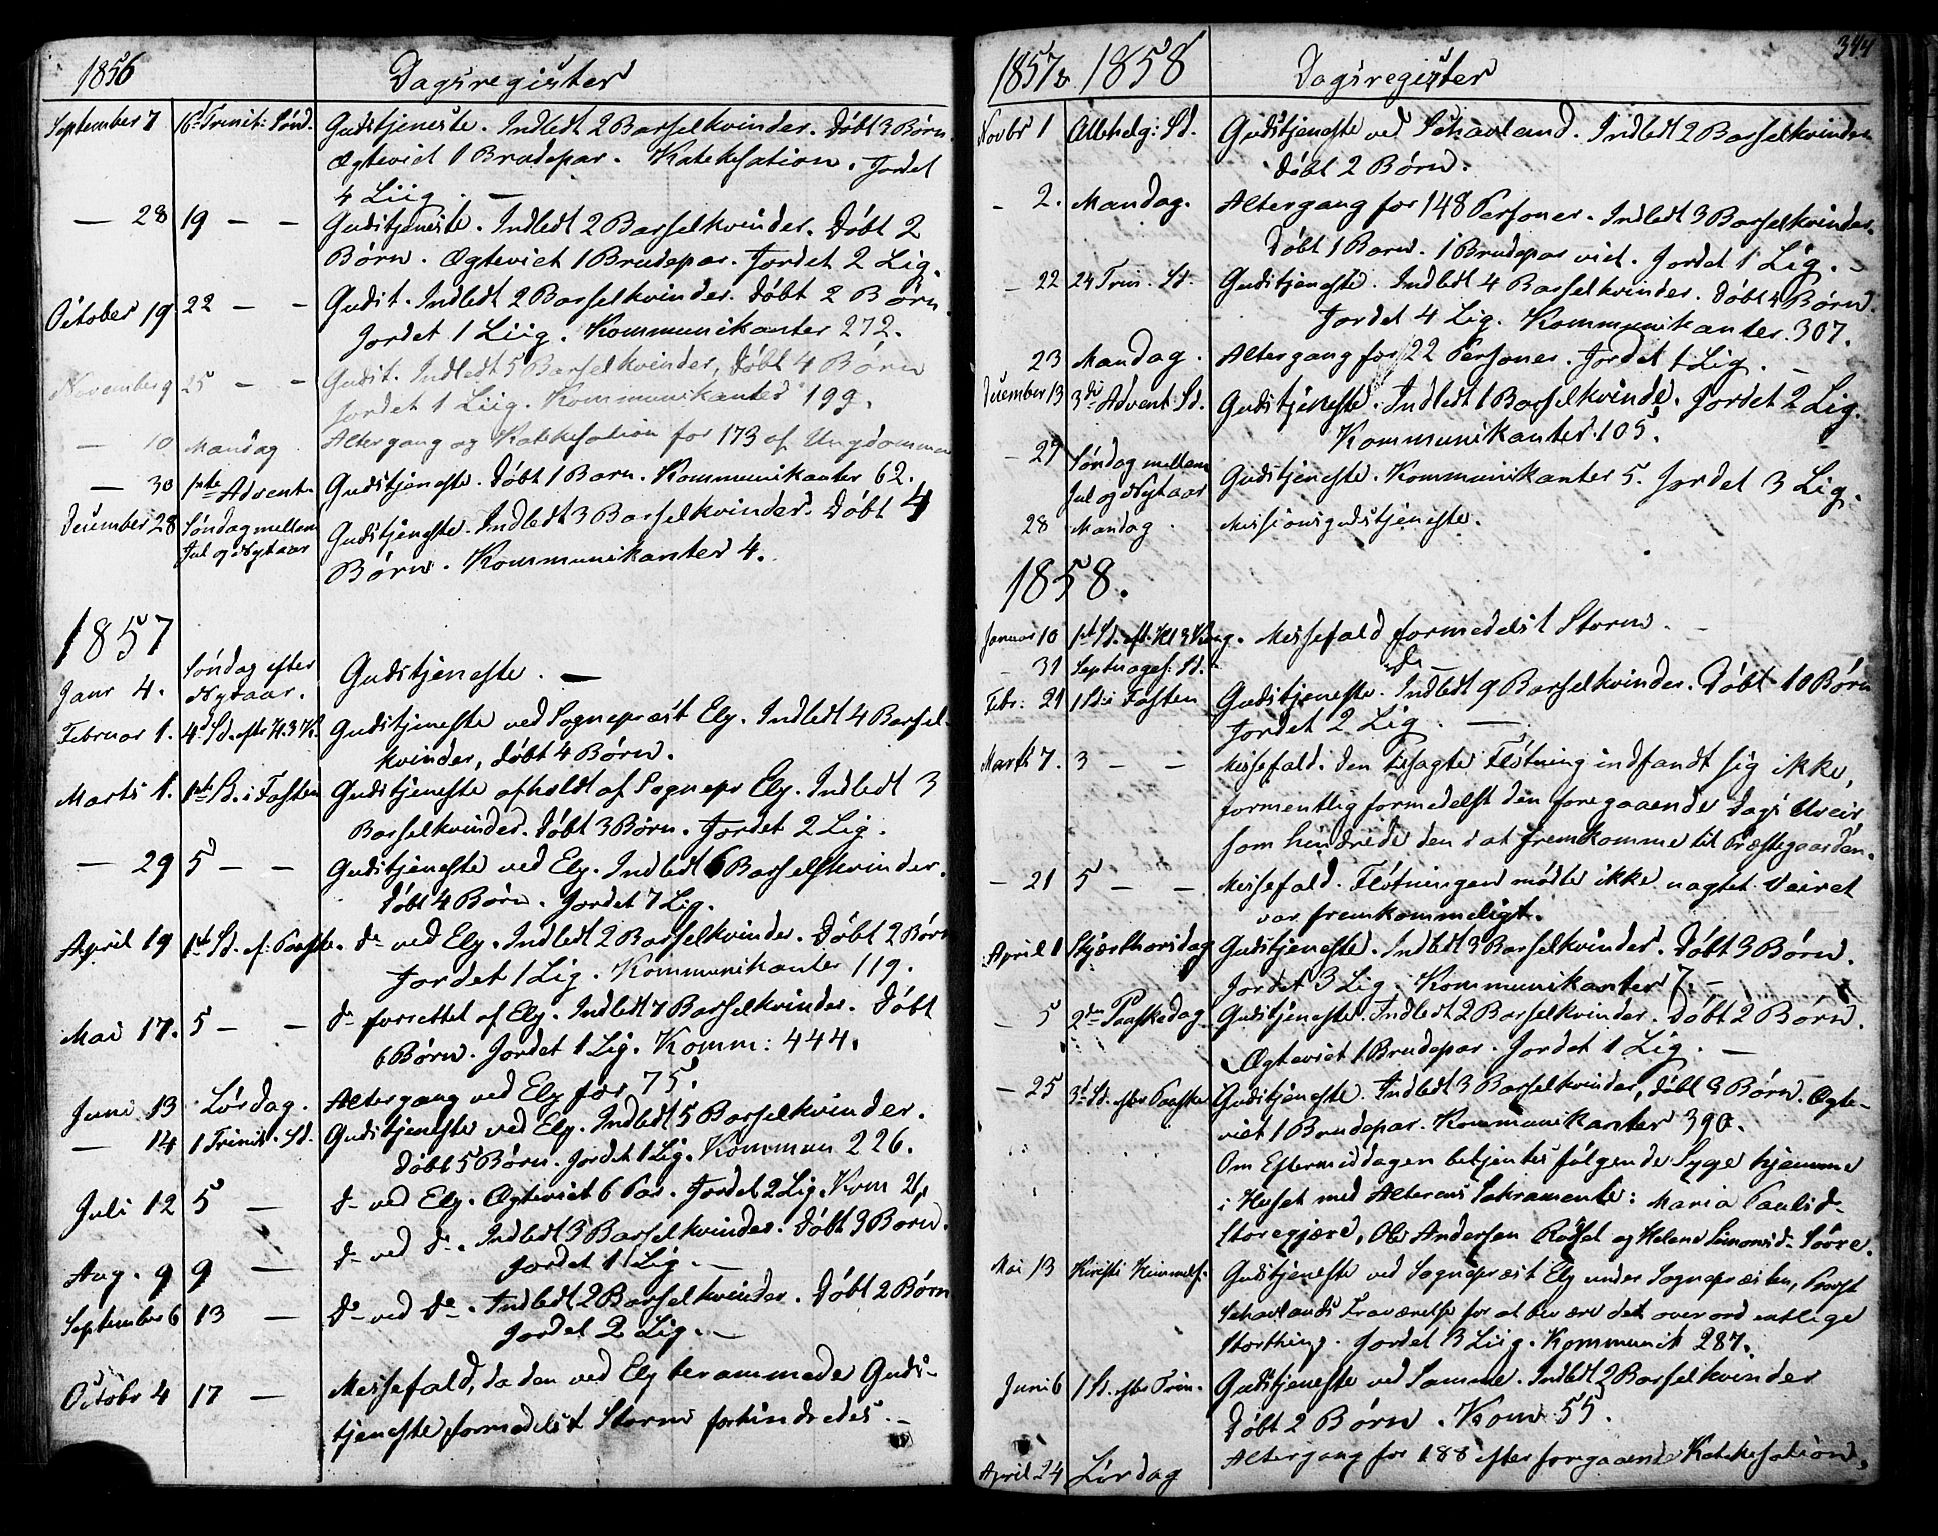 1856 Dagsregister
September 7 16d Trinit: Sönd. Gudstjeneste. Indledt 2 Barselkvinder. Döbt 3 Börn.
Ægteviet 1 Brudepar. Katekesation. Jordet
4 Liig. —
— 28 19 — — Gudstjeneste. Indledt 2 Barselkvinder. Döbt 2
Börn. Ægteviet 1 Brudepar. Jordet 2 Lig.
October 19 22 — — Gudst. Indledt 2 Barselkvinder. Döbt 2 Börn.
Jordet 1 Liig. Kommunikanter 272.
November 9 25 — — Gudst. Indledt 5 Barselkvinder, Döbt 4 Börn
Jordet 1 Liig. Kommunikanter 199.
— 10 Mandag Altergang og Katekesation for 173 af Ungdommen
— 30 1ste Advent Gudstjeneste. Döbt 1 Barn. Kommunikanter 62.
December 28 Söndag mellem Gudstjeneste. Indledt 3 Barselkvinder. Döbt 4
Jul og Nytaar Börn. Kommunikanter 4.
1857
Janr 4. Söndag efter Gudstjeneste. —
Nytaar.
Februar 1. 4d Sd. eftr H.3 K. Gudstjeneste ved Sognepræst Ely. Indledt 4 Barsel-
kvinder, döbt 4 Börn.
Marts 1. 1ste S. i Fasten Gudstjeneste afholdt af Sognepr Ely. Indledt 3
Barselkvinder. Döbt 3 Börn. Jordet 2 Lig.
— 29 5 — — Gudstjeneste ved Ely. Indledt 6 Barselskvinder.
Döbt 4 Börn. Jordet 7 Lig.
April 19 1ste Sd. ef: Paaske. do ved Ely. Indledt 2 Barselkvinder. Döbt 2 Börn
Jordet 1 Lig. Kommunikanter 119.
Mai 17. 5 — — do forrettet af Ely. Indledt 7 Barselkvinder. Döbt
6 Börn. Jordet 1 Lig. Komm: 444.
Juni 13 Lördag. Altergang ved Ely for 75.
— 14 1 Trinit. Sd. Gudstjeneste ved Ely. Indledt 5 Barselkvinder.
Döbt 5 Börn. Jordet 1 Lig. Kommun 226.
Juli 12 5 — do ved Ely. Ægteviet 6 Par. Jordet 2 Lig. Kom
Aug. 9 9 — do ved do. Indledt 3 Barselkvinder. Döbt 3 Börn.
Jordet 1 Lig. —
September 6 13 — do ved do. Indledt 2 Barselkvinder. Döbt 2 Börn
Jordet 2 Lig. —
Octobr 4 17 — Messefald, da den ved Ely berammede Guds-
tjeneste formedelst Storm forhindredes. —
1857 & 1858 Dagsregister 344
Novbr 1 Allehelg: Sd. Gudstjeneste ved Schavland. Indledt 2 Barselkvinder.
Döbt 2 Börn.
— 2. Mandag. Altergang for 148 Personer. Indledt 3 Barselkvinder.
Döbt 1 Barn. 1 Brudepar viet. Jordet 1 Lig. —
— 22 24 Trin. Sd. Gudstjeneste. Indledt 4 Barselkvinder. Döbt 4 Börn.
Jordet 4 Lig. Kommunikanter. 307.
23 Mandag. Altergang for 22 Personer. Jordet 1 Lig. —
December 13 3de Advent: Sd. Gudstjeneste. Indledt 1 Barselkvinde. Jordet 2 Lig.
Kommunikanter. 105.
— 27 Söndag mellem Gudstjeneste. Kommunikanter 5. Jordet 3 Lig.
Jul og Nytaar
28 Mandag Missionsgudstjeneste.
1858.
Januar 10 1ste Sd. eft. Hl 3 Kong. Messefald formedelst Storm. —
— 31 Septuages: Sd. do —
Febr: 21 1 S. i Fasten Gudstjeneste. Indledt 9 Barselkvinder. Döbt 10 Börn
Jordet 2 Lig. —
Marts 7. 3 — — Messefald. Den tilsagte Flötning indfandt sig ikke,
formentlig formedelst den foregaaende Dags Uveir
som hindrede den i at fremkomme til Præstegaarden.
— 21 5 — — Messefald. Flötningen mödte ikke uagtet Veiret
var fremkommeligt.
April 1 Skjærthorsdag Gudstjeneste. Indledt 3 Barselkvinder. Döbt 3 Börn.
Jordet 3 Lig. Kommunikanter 7. —
— 5 2den Paaskedag Gudstjeneste. Indledt 2 Barselkvinder. Döbt 2 Börn.
Ægteviet 1 Brudepar. Jordet 1 Lig. —
— 25 3d Sd. efter Paaske Gudstjeneste. Indledt 3 Barselkvinder, döbt 3 Börn. Ægte-
viet 1 Brudepar. Kommunikanter 390.
Om Eftermiddagen betjentes fölgende Syge hjemme
i Huset med Alterens Sakramente: Maria Paulsd.
Storegjære, Ole Andersen Rösel og Helene Simonsd. Sörre.
Mai 13 Kristi Himmelf. Gudstjeneste ved Sognepræst Ely under Sognepræsten, Provst
Schavlands Fraværelse for at bivære det overordentlige
Storthing. Jordet 3 Liig. Kommunik 287.
Juni 6 1 S. efter Trin. Gudstjeneste ved Samme. Indledt 2 Barselkvinder
Döbt 2 Börn. Kom 55.
April 24 Lördag Altergang for 188 efter foregaaende Katekesation.